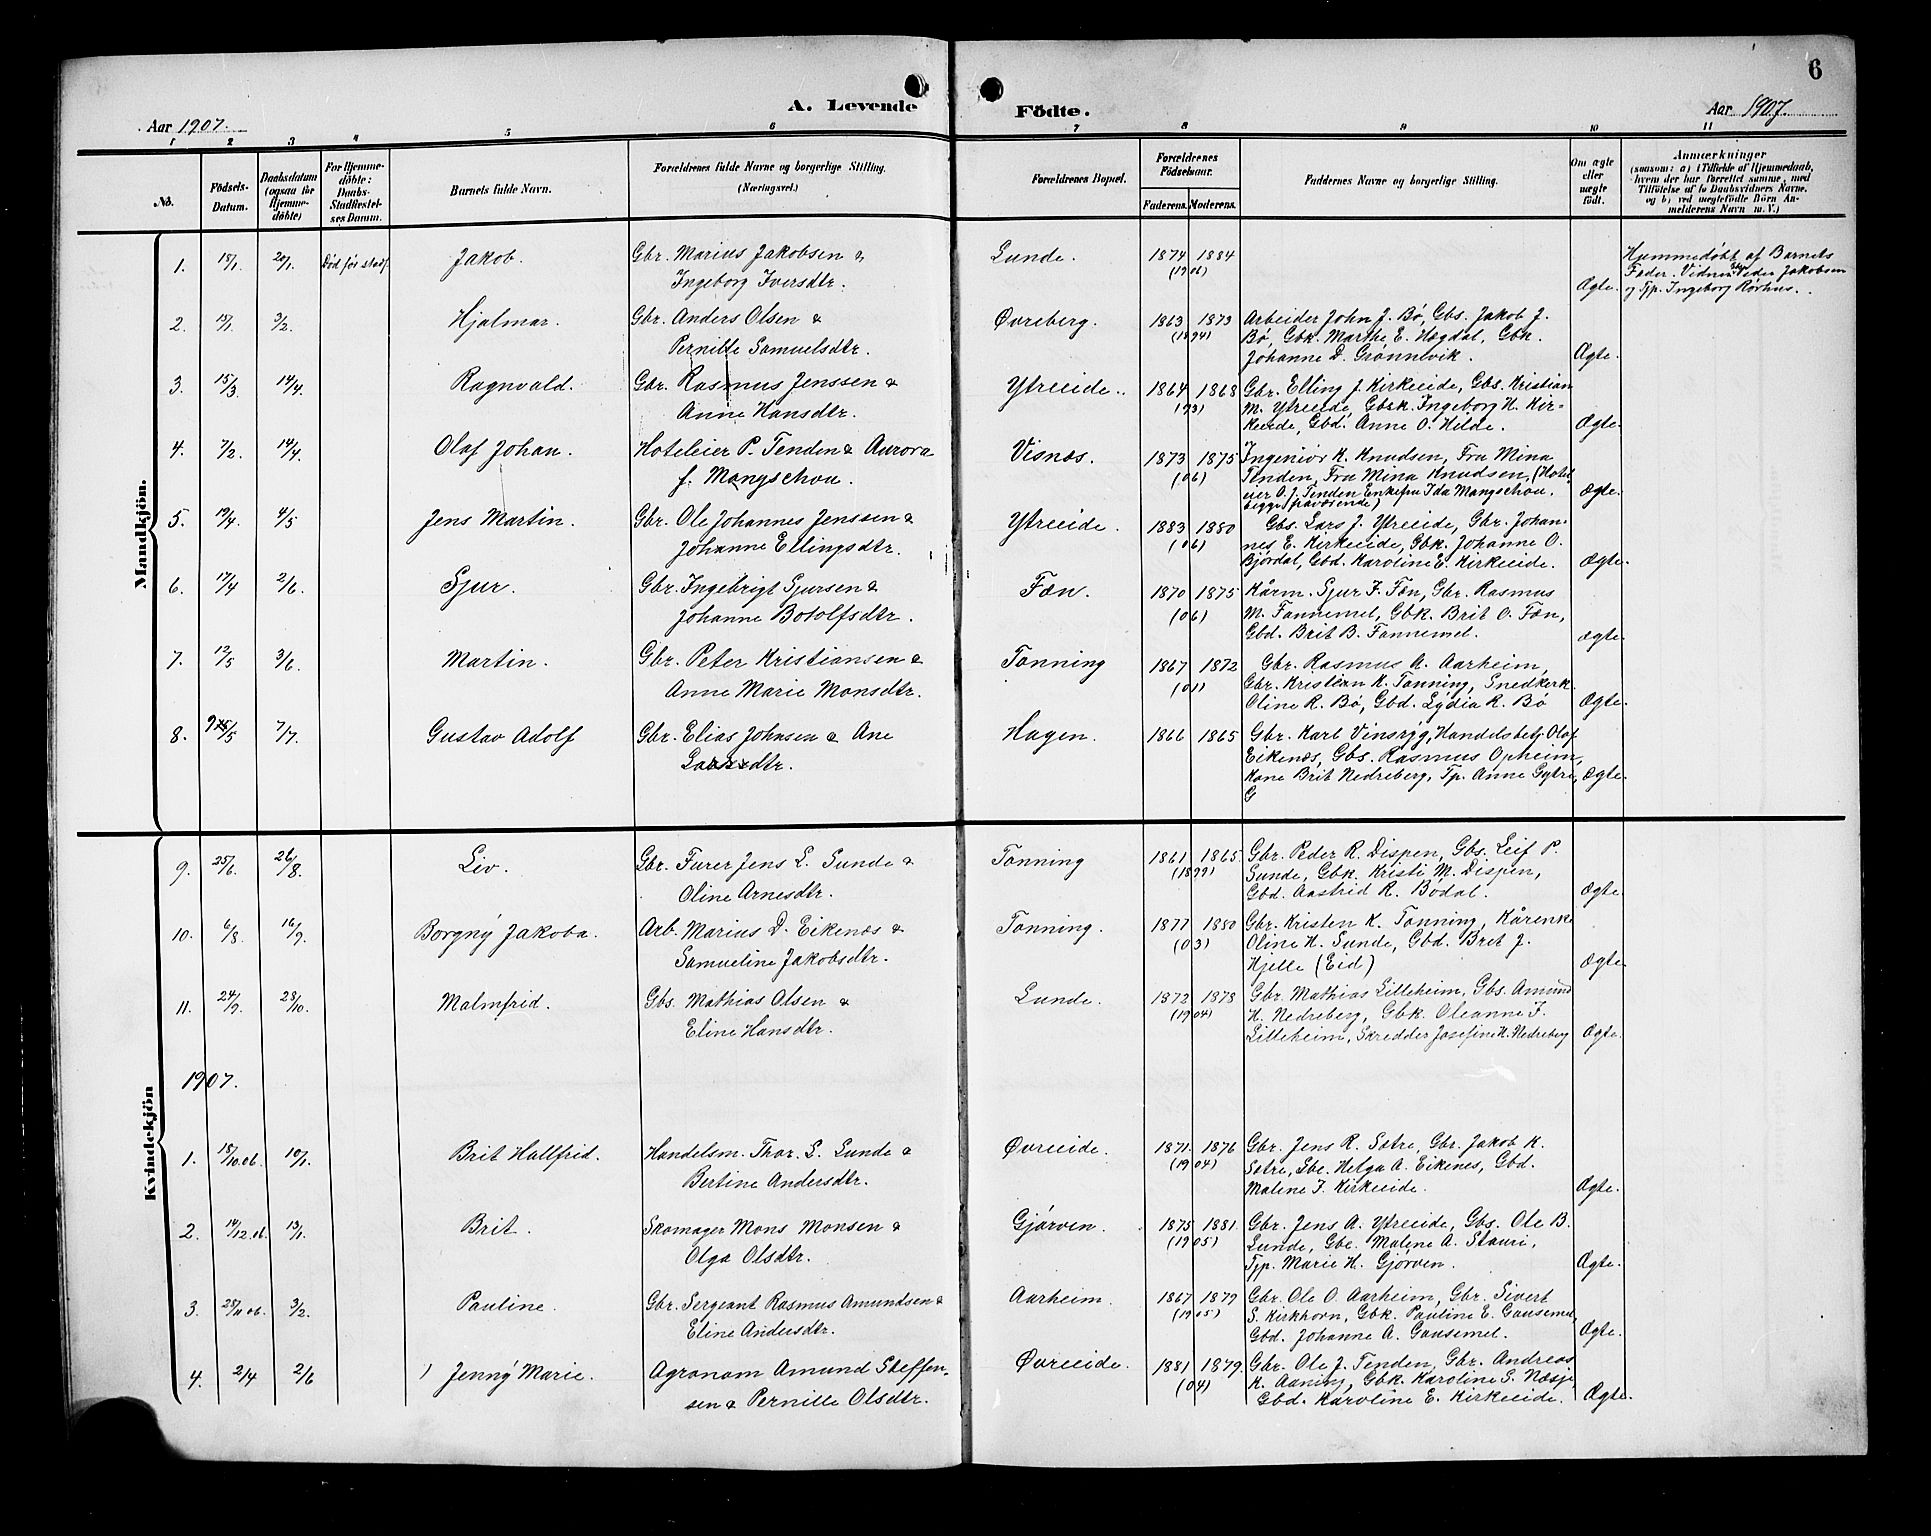 6
A. Levende Födte.
Aar 1907.
Aar 1907.
1 2 3 4 5 6 7 8 9 10 11
No.
Födsels-Datum.
Daabsdatum (ogsaa for Hjemme-döbte)
For Hjemme-döbte: Daabs-Stadfæstelses Datum.
Barnets fulde Navn.
Forældrenes fulde Navne og borgerlige Stilling. (Næringsvei.)
Forældrenes Bopæl.
Forældrenes Födselsaar.
Faderens. Moderens.
Faddernes Navne og borgerlige Stilling.
Om ægte eller uægte födt.
Anmærkninger
(saasom: a) i Tilfælde af Hjemmedaab, hvem der har forrettet samme, med Tilföielse af to Daabsvidners Navne, og b) ved uægtefödte Börn Anmelderens Navn m. V.)
Mandkjön.
1. 18/1 20/1 Död før stadf. Jakob. Gbr. Marius Jakobsen & Lunde. 1874 1884 Hjemmedøbt af Barnets
Ingeborg Iversdtr. (1906) Ægte. Fader. Vidner: Peder Jakobsen
og Tjp. Ingeborg Rørhus.
2. 15/1 3/2 Hjalmar. Gbr. Anders Olsen & Øvreberg. 1863 1873 Arbeider John J. Bø, Gbs. Jakob J.
Pernille Samuelsdtr. (1894) Bø, Gbk. Marthe E. Hegdal, Gbk.
Johanne D. Grønnevik. Ægte.
3. 15/3 14/4 Ragnvald. Gbr. Rasmus Jenssen & Ytreeide. 1864 1868 Gbr. Elling J. Kirkeeide, Gbs. Kristian
Anne Hansdtr. (93) M. Ytreeide, Gbsk. Ingeborg H. Kir-
keeide, Gbd. Anne O. Hilde. Ægte.
4. 7/2 14/4 Olaf Johan. Hoteleier P. Tenden & Aurora Visnæs. 1873 1875 Ingeniør K. Knudsen, Fru Mina
f. Mangschou. (06) Tenden, Fru Mina Knudsen, (Hotel-
eier O. J. Tenden Enkefru Ida Mangschou.
begge fraværende) Ægte.
5. 19/4 4/5 Jens Martin. Gbr. Ole Johannes Jenssen & Ytreeide. 1883 1880 Gbs. Lars J. Ytreeide, Gbr. Johan-
Johanne Ellingsdtr. (06) nes E. Kirkeeide, Gbk. Johanne O.
Bjørdal, Gbd. Karoline E. Kirkeeide. Ægte.
6. 17/4 2/6 Sjur. Gbr. Ingebrigt Sjursen & Fæn. 1870 1875 Kårm. Sjur I. Fæn, Gbr. Rasmus
Johanne Botolfsdtr. (06) M. Fannemel, Gbk. Brit O. Fæn,
Gbd. Brit B. Fannemel. ægte.
7. 12/5 3/6 Martin. Gbr. Peter Kristiansen & Tonning 1867 1872 Gbr. Rasmus A. Aarheim,
Anne Marie Monsdtr. (01) Gbr. Kristian K. Tonning, Snedkerk.
Oline R. Bø, Gbd. Lydia R. Bø Ægte.
8. 7/7 Gustav Adolf Gbr. Elias Johnsen & Ane Hagen. 1866 1865 Gbr. Karl Vinsrýg, Handelsbetj. Olaf
Larsdtr. Eikenæs, Gbs. Rasmus Opheim,
Kone Brit Nedreberg, Tp. Anne Gytre, Ægte.
G
Kvindekjön
9. 25/6 26/8 Liv. Gbr. Furer Jens L. Sunde & Tonning 1861 1865. Gbr. Peder R. Dispen, Gbs. Leif P.
Oline Arnesdtr. (1899) Sunde, Gbk. Kristi M. Dispen,
Gbd. Aastrid R. Bødal. Ægte.
10. 6/8 16/9 Borgný Jakoba. Arb. Marius D. Eikenæs & Tonning. 1877 1880 Gbr. Kristen K. Tonning, Kårenke
Samueline Jakobsdtr. (03) Oline H. Sunde, Gbd. Brit J.
Hjelle (Eid) Ægte.
11. 24/9 28/10. Malmfrid. Gbs. Mathias Olsen & Lunde. 1872 1878 Gbr. Mathias Lilleheim, Gbs. Amund
Eline Hansdtr. (1904) H. Nedreberg, Gbk. Oleanne I.
Lilleheim, Skredder Josefine H. Nedreberg Ægte.
1907.
1. 18/10.06. 10/1. Brit Hallfrid. Handelsm. Thor. L. Lunde & Øvreeide. 1871. 1876 Gbr. Jens R. Sætre, Gbr. Jakob K.
Bertine Andersdtr. (1904) Sætre, Gbe. Helga A. Eikenes, Gbd.
Maline I. Kirkeeide. Ægte.
2. 14/12.06. 13/1. Brit. Skomager Mons Monsen & Gjørven. 1875 1881. Gbr. Jens A. Ytreeide, Gbs. Ole B.
Olga Olsdtr. (1905) Lunde, Gbe. Malene A. Stauri,
Tjp. Marie H. Gjørven. Ægte.
3. 28/11 06. 3/2. Pauline. Gbr. Sergeant Rasmus Amundsen & Aarheim. 1867 1879 Gbr. Ole O. Aarheim, Gbr. Sivert
Eline Andersdtr. (1905) S. Kirkhorn, Gbk. Pauline E. Gausemel,
Gbd. Johanne A. Gausemel. Ægte.
4. 2/4 2/6 Jenný Marie. Agronom Amund Steffen- Øvreeide. 1881 1879. Gbr. Ole J. Tenden, Gbr. Andreas
sen & Pernille Olsdtr. (04) K. Aaning, Gbk. Karoline S. Næsje
Gbd. Karoline E. Kirkeeide. Ægte.